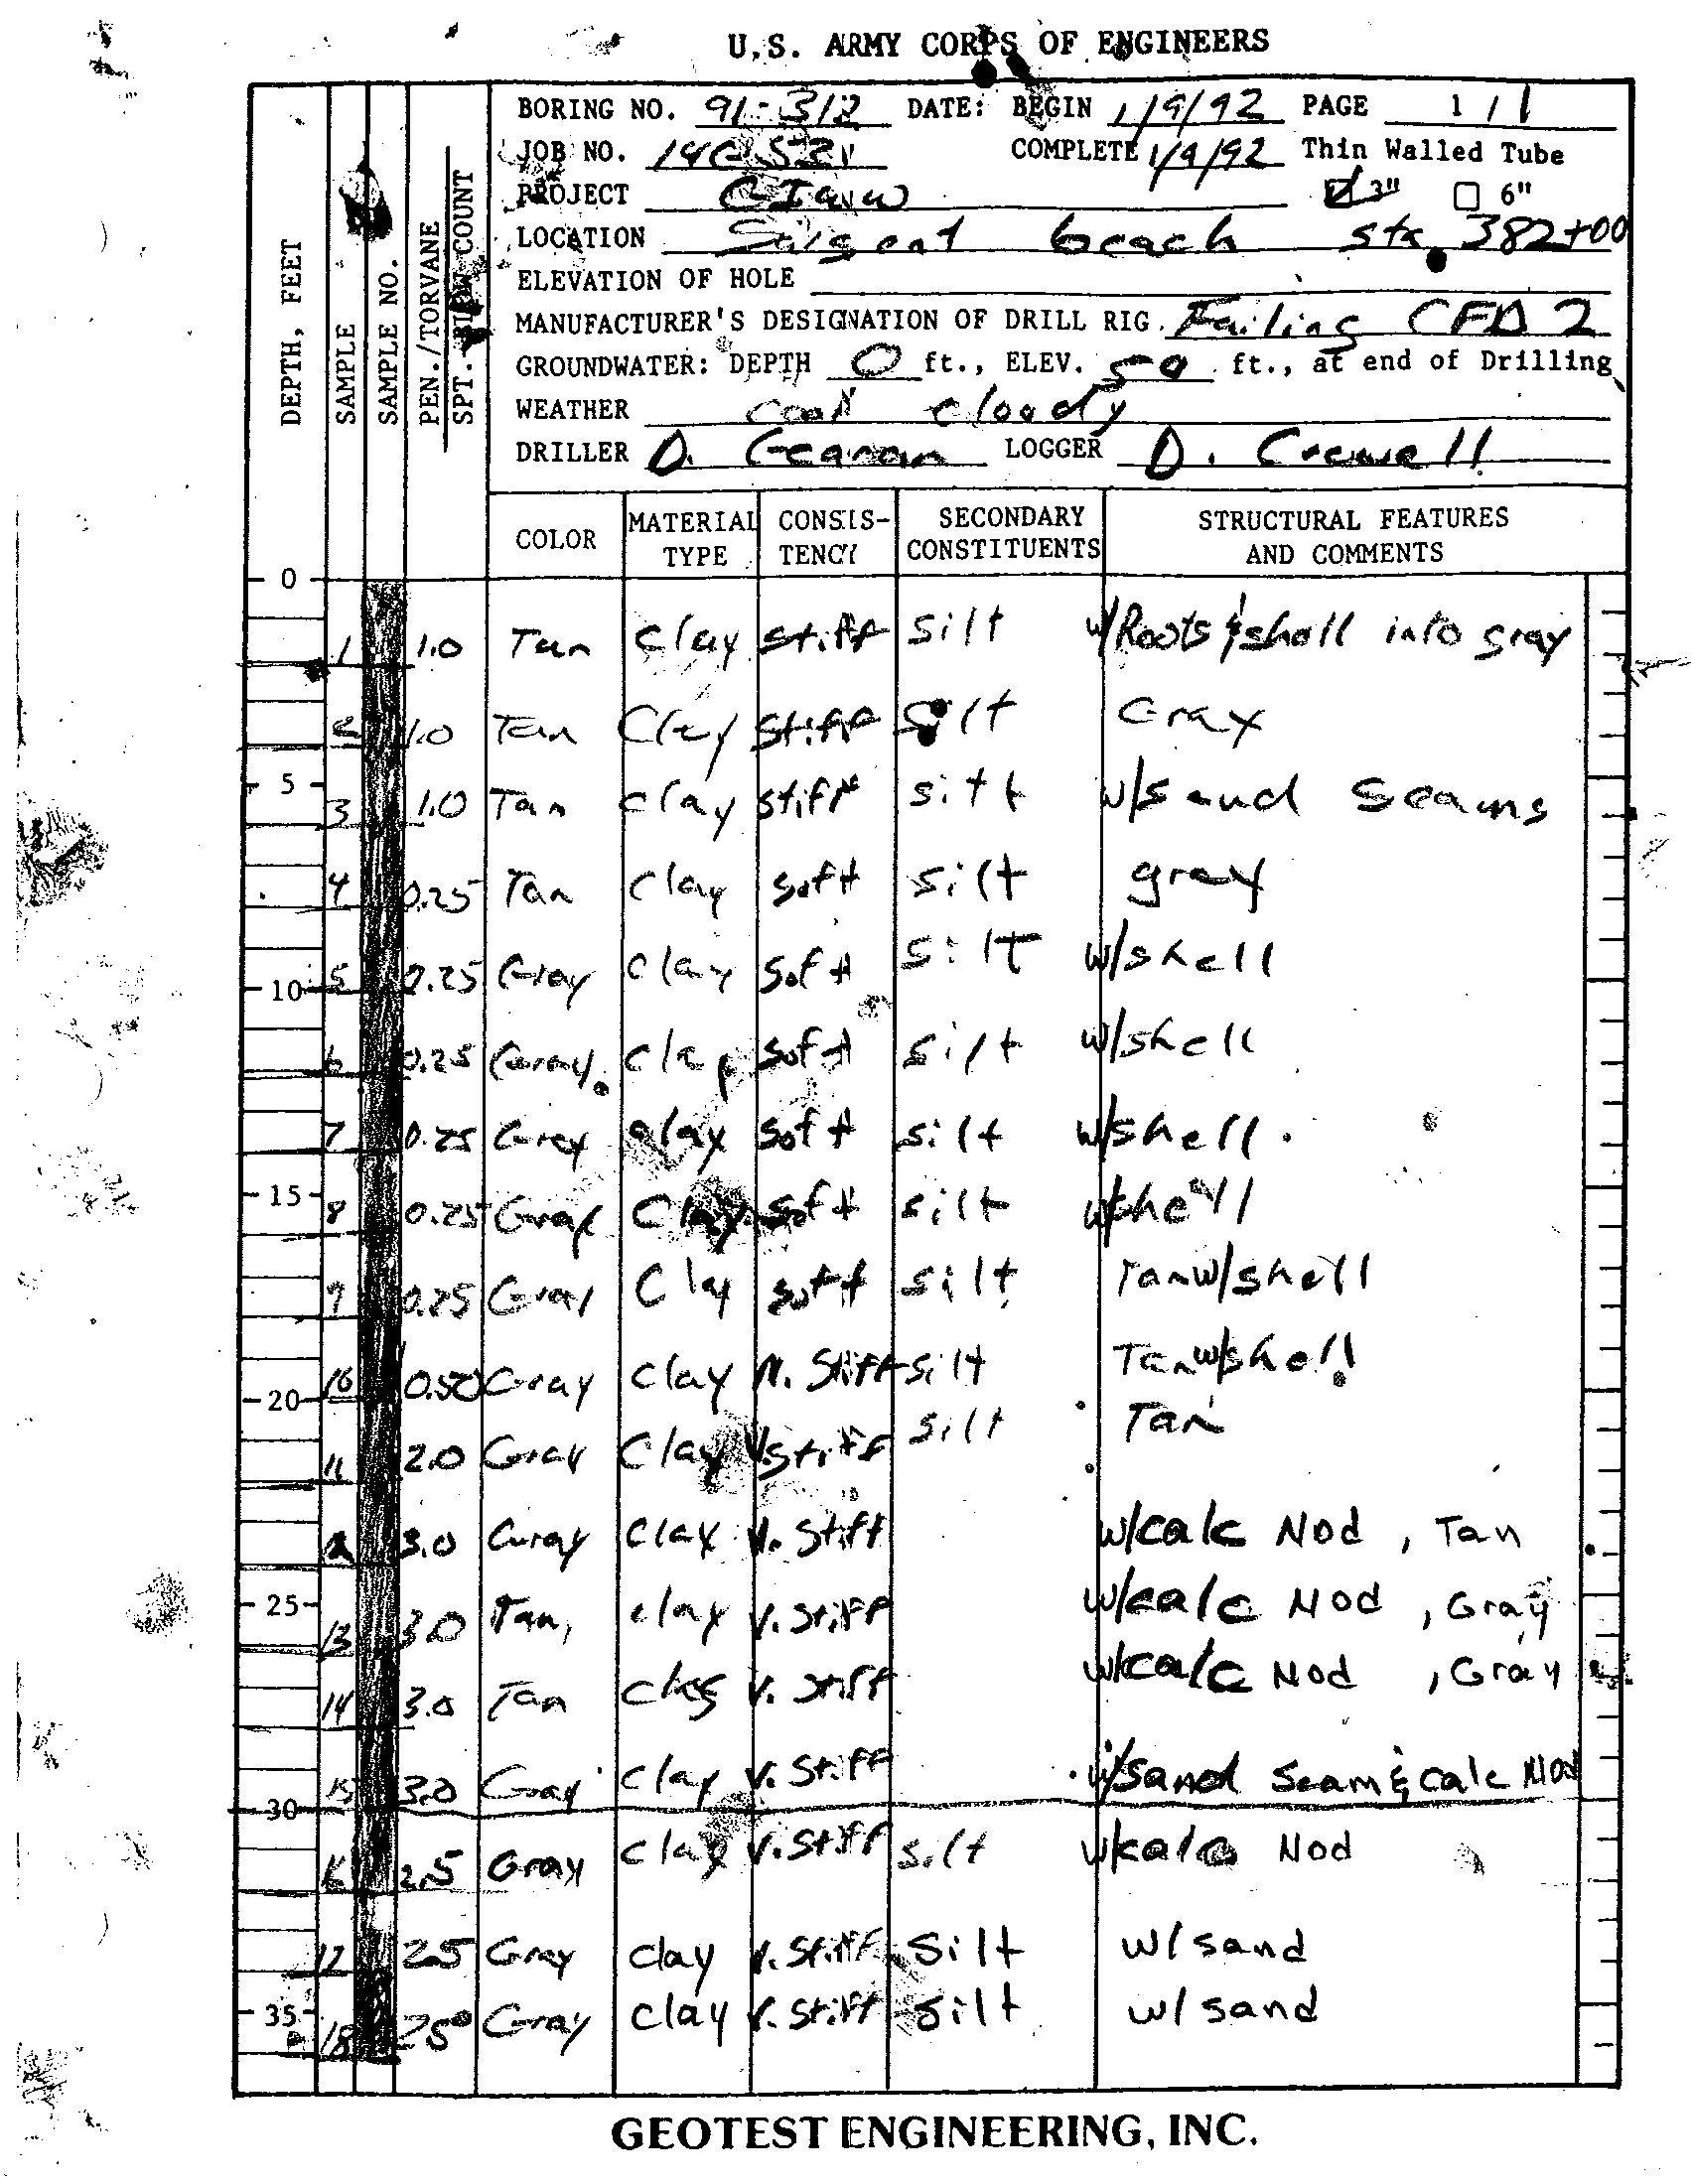 U.S. ARMY CORPS OF ENGINEERS
BORING NO. 91-312 DATE: BEGIN 1/9/92 PAGE 1/1
JOB NO. COMPLETE 1/9/92 Thin Walled Tube
PROJECT GIWW 3" 6"
LOCATION Sargent beach sta. 382+00
ELEVATION OF HOLE
MANUFACTURER'S DESIGNATION OF DRILL RIG. Failing CFD 2
GROUNDWATER: DEPTH 0 ft., ELEV. ft., at end of Drilling
WEATHER Cool cloudy
DRILLER D. LOGGER D.
DEPTH, FEET
SAMPLE
SAMPLE NO.
PEN./TORVANE
SPT. BLOW COUNT
COLOR MATERIAL TYPE CONSIS-TENCY SECONDARY CONSTITUENTS STRUCTURAL FEATURES AND COMMENTS
0
1 1.0 Tan clay stiff silt w/Roots & shell into gray
2 1.0 Tan Clay stiff silt Gray
5
3 1.0 Tan clay stiff silt w/sand seams
4 0.25 Tan clay soft silt gray
10 5 0.25 Gray clay soft silt w/shell
6 0.25 Gray clay soft silt w/shell
7 0.25 Gray clay soft silt w/shell
15
8 0.25 Gray Clay soft silt w/shell
9 0.25 Gray Clay soft silt Tan w/shell
20 10 0.50 Gray clay M. Stiff silt Tan w/shell
11 2.0 Gray Clay V. stiff silt Tan
12 3.0 Gray clay V. Stiff w/calc Nod, Tan
25
13 3.0 Tan, clay V. Stiff w/calc Nod, Gray
14 3.0 Tan clay V. Stiff w/calc Nod, Gray
15 3.0 Gray clay V. Stiff w/sand seam & calc Nod
30
16 2.5 Gray clay V. Stiff silt w/calc Nod
17 2.5 Gray clay V. Stiff Silt w/ sand
35
18 2.5 Gray clay V. Stiff silt w/ sand
GEOTEST ENGINEERING, INC.